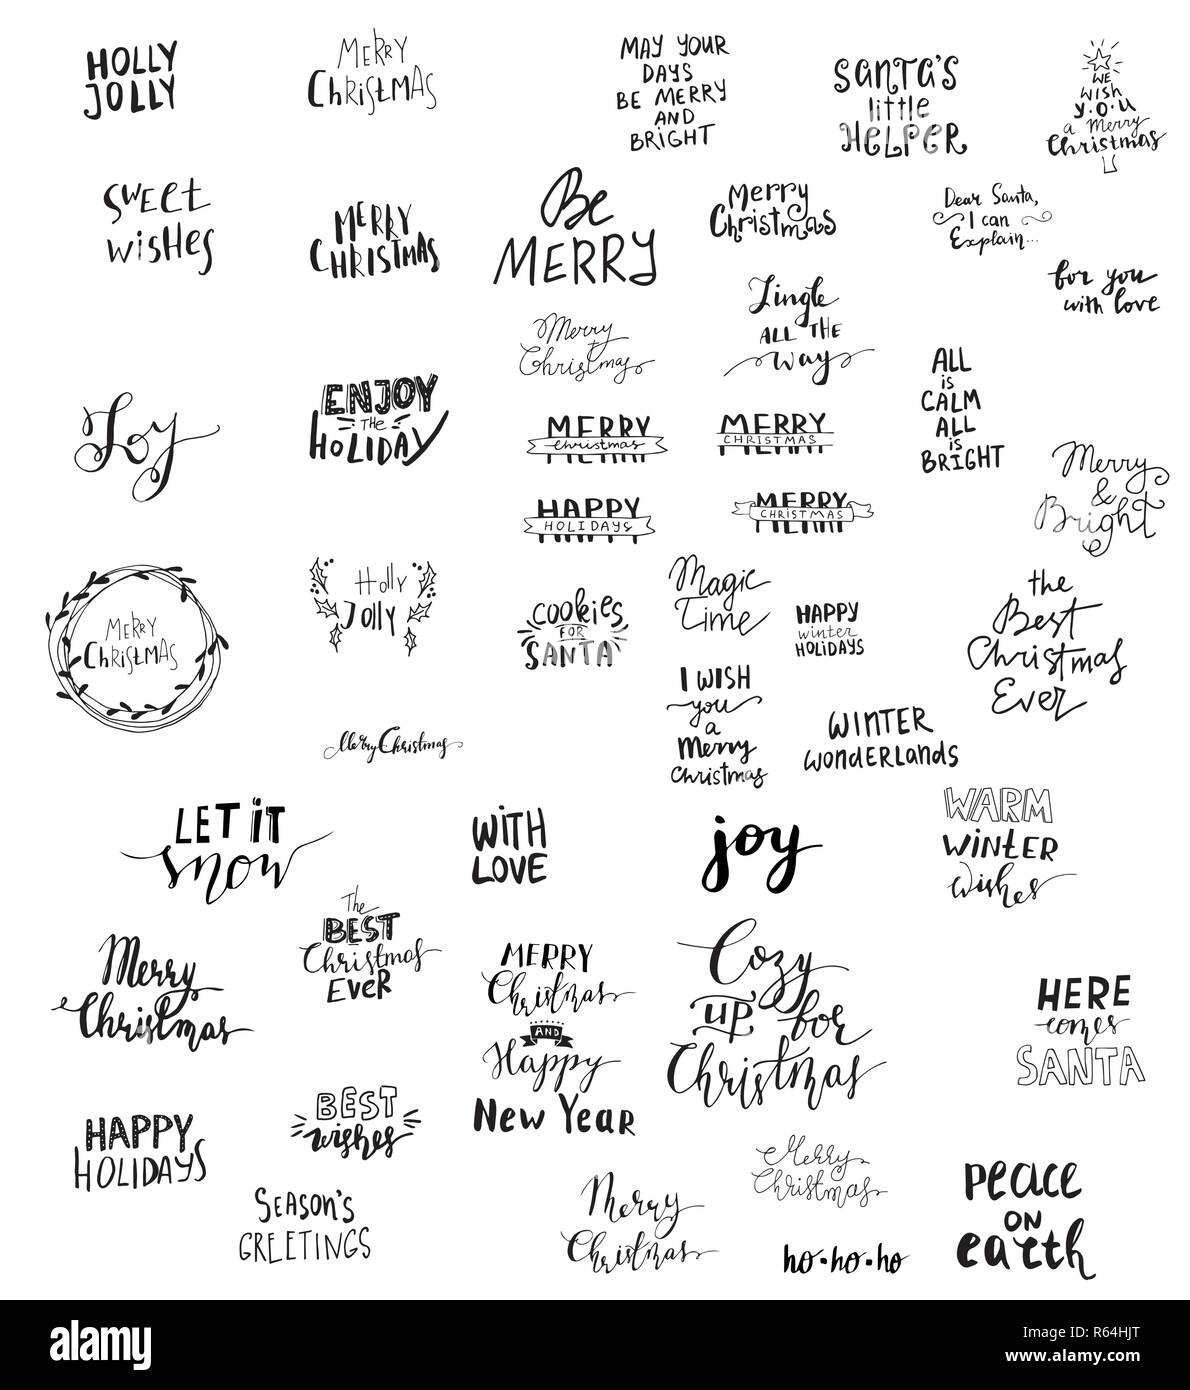 HOLLY
JOLLY
MERRY
CHRISTMAS
MAY YOUR
DAYS
BE MERRY
AND
BRIGHT
SANTA'S
little
HELPER
WE
wish
Y.O.U
a Merry
Christmas
SWEET
WISHES
MERRY
CHRISTMAS
Be
MERRY
Merry
Christmas
Dear Santa,
I can
Explain...
for you
with love
Jingle
ALL THE
way
Merry
Christmas
ALL
is
CALM
ALL
is
BRIGHT
Joy
ENJOY
THE
HOLIDAY
MERRY
christmas
MERRY
CHRISTMAS
Merry
&
Bright
HAPPY
HOLIDAYS
MERRY
CHRISTMAS
MERRY
CHRISTMAS
Holly
Jolly
COOKIES
FOR
SANTA
Magic
Time
HAPPY
winter
HOLIDAYS
the
Best
Christmas
Ever
I WISH
you
a
Merry
Christmas
WINTER
WONDERLANDS
Merry Christmas
LET IT
snow
WITH
LOVE
joy
WARM
WINTER
Wishes
The
BEST
Christmas
EVER
Merry
Christmas
MERRY
Christmas
AND
Happy
NEW YEAR
Cozy
UP for
Christmas
HERE
comes
SANTA
HAPPY
HOLIDAYS
BEST
wishes
SEASON'S
GREETINGS
Merry
Christmas
Merry
Christmas
ho·ho·ho
PEACE
ON
EARTH
alamy
Image ID: R64HJT
www.alamy.com